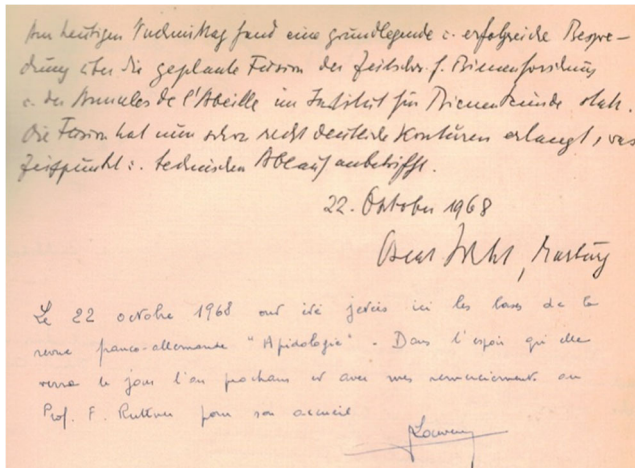 Am heutigen Nachmittag fand eine grundlegende u. erfolgreiche Bespre-
chung über die geplante Fusion der Zeitschr. f. Bienenforschung
u. der Annales de l'Abeille im Institut für Bienenkunde statt.
Die Fusion hat nun schon recht deutliche Konturen erlangt, was
Zeitpunkt u. technischen Ablauf anbetrifft.
22. Oktober 1968
, Marburg
Le 22 octobre 1968 ont été jetées ici les bases de la
revue franco-allemande "Apidologie". Dans l'espoir qu'elle
verra le jour l'an prochain et avec mes remerciements au
Prof. F. Ruttner pour son accueil
JLouveaux